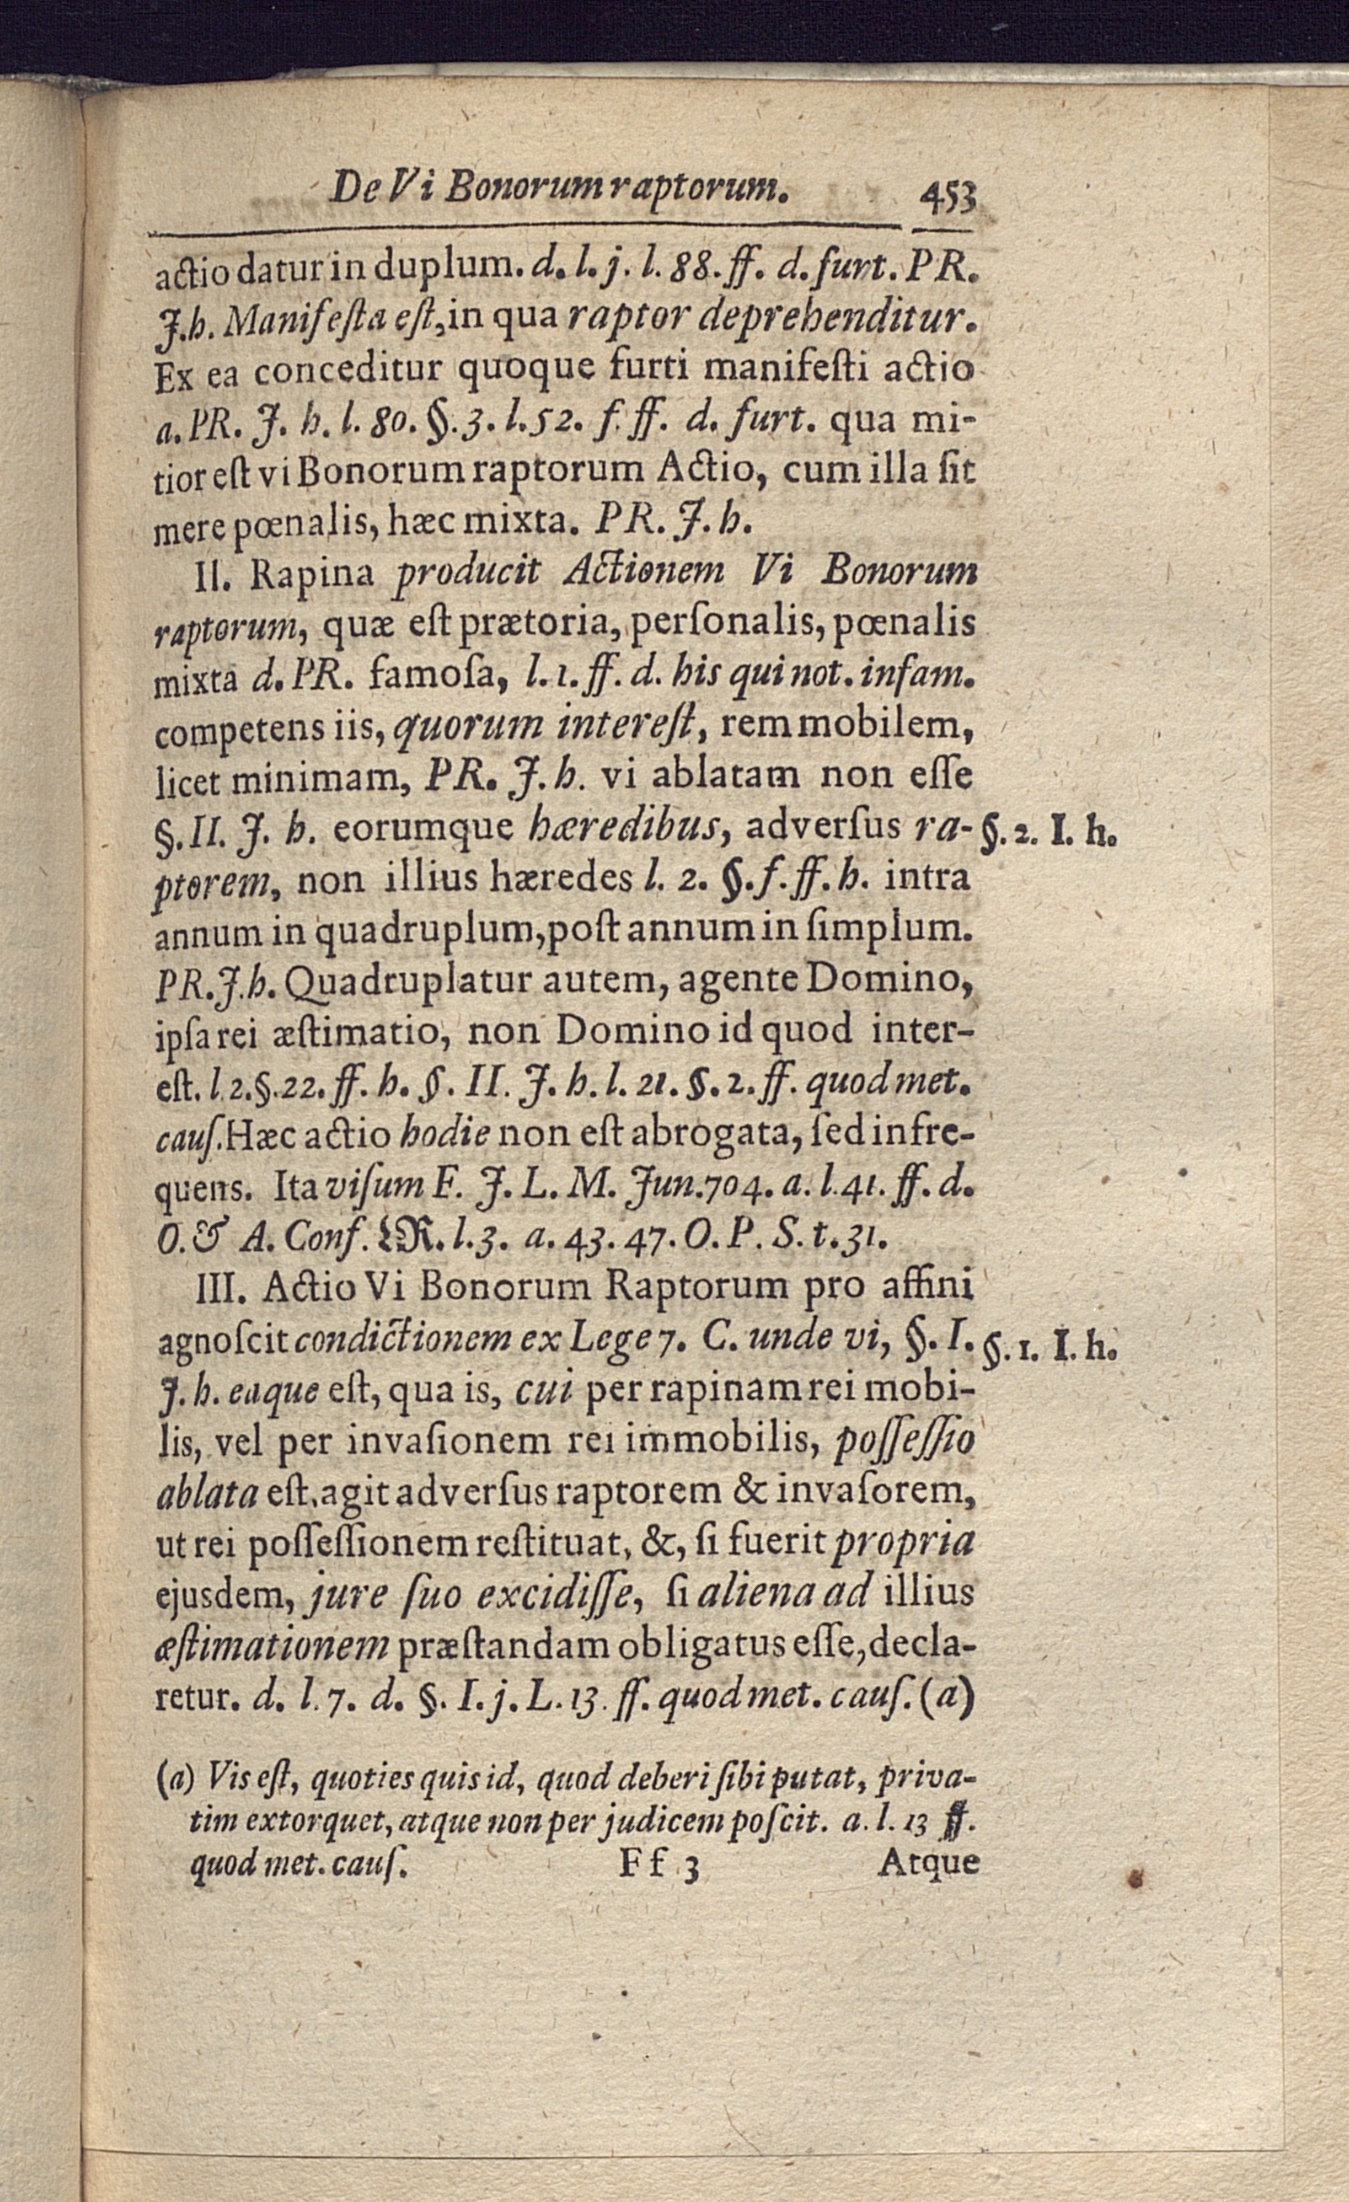 De Vi Bonorum raptorum. 453
actio datur in duplum. d. l. j. l. 88. ff. d. furt. PR.
J. h. Manifeſta eſt, in qua raptor deprehenditur.
Ex ea conceditur quoque furti manifeſti actio
a. PR. J. h. l. 80. §. 3. l. 52. f. ff. d. furt. qua mi-
tior eſt vi Bonorum raptorum Actio, cum illa ſit
mere pœnalis, hæc mixta. PR. J. h.
II. Rapina producit Actionem Vi Bonorum
raptorum, quæ eſt prætoria, perſonalis, pœnalis
mixta d. PR. famoſa, l. 1. ff. d. his qui not. infam.
competens iis, quorum intereſt, rem mobilem,
licet minimam, PR. J. h. vi ablatam non eſſe
§. II. J. h. eorumque hæredibus, adverſus ra- §. 2. I. h.
ptorem, non illius hæredes l. 2. §. f. ff. h. intra
annum in quadruplum, poſt annum in ſimplum.
PR. J. h. Quadruplatur autem, agente Domino,
ipſa rei æſtimatio, non Domino id quod inter-
eſt. l. 2. §. 22. ff. h. §. II. J. h. l. 21. §. 2. ff. quod met.
cauſ. Hæc actio hodie non eſt abrogata, ſed infre-
quens. Ita viſum F. J. L. M. Jun. 704. a. l. 41. ff. d.
O. & A. Conf. LR. l. 3. a. 43. 47. O. P. S. t. 31.
III. Actio Vi Bonorum Raptorum pro affini
agnoſcit condictionem ex Lege 7. C. unde vi, §. I. §. 1. I. h.
J. h. eaque eſt, qua is, cui per rapinam rei mobi-
lis, vel per invaſionem rei immobilis, poſſeſſio
ablata eſt, agit adverſus raptorem & invaſorem,
ut rei poſſeſſionem reſtituat, &, ſi fuerit propria
ejusdem, jure ſuo excidiſſe, ſi aliena ad illius
æſtimationem præſtandam obligatus eſſe, decla-
retur. d. l. 7. d. §. I. j. L. 13. ff. quod met. cauſ. (a)
(a) Vis eſt, quoties quis id, quod deberi ſibi putat, priva-
tim extorquet, atque non per judicem poſcit. a. l. 13 ff.
quod met. cauſ. Ff 3 Atque